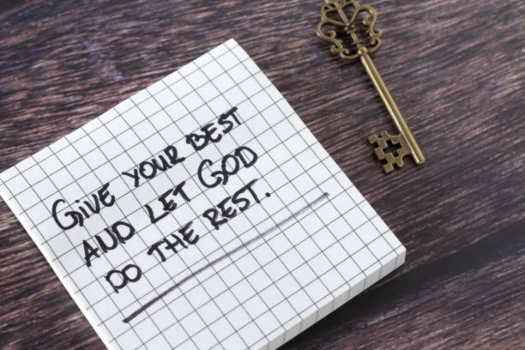 GIVE YOUR BEST
AND LET GOD
DO THE REST.